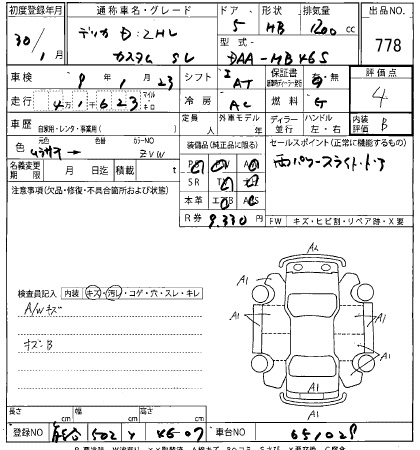 初度登録年月 通称車名・グレード ドア 形状 排気量 出品No.
30/1月 デリカ D:2HV カスタム SV 5 HB 1200cc 778
型式 DAA-MB46S
車検 9 1 23 シフト AT 保証書 有・無 評価点
走行 41623 マイル キロ 冷房 AC 燃料 G 4
車歴 自家用・レンタ・事業用( ) 定員 人 外車モデル 年 ディーラー 並行 ハンドル 左・右 内装 評価 B
色 元色 色替 カラーNo ZVW 装備品(純正品に限る) セールスポイント(正常に機能するもの)
名義変更期限 月 日迄 積載 t 両パワースライドドア
注意事項(欠品・修復・不具合箇所および状態)
SR
本革 エアB
R券 9,330円 FW キズ・ヒビ割・リペア跡・X要
検査員記入 内装 キズ・汚レ・コゲ・穴・スレ・キレ
A/Wキズ
キズ-B
A2
A1 A1
A1 A1
A1 A1
A1
長さ cm 幅 cm 高さ cm
登録No 502 46-07 車台No 651029